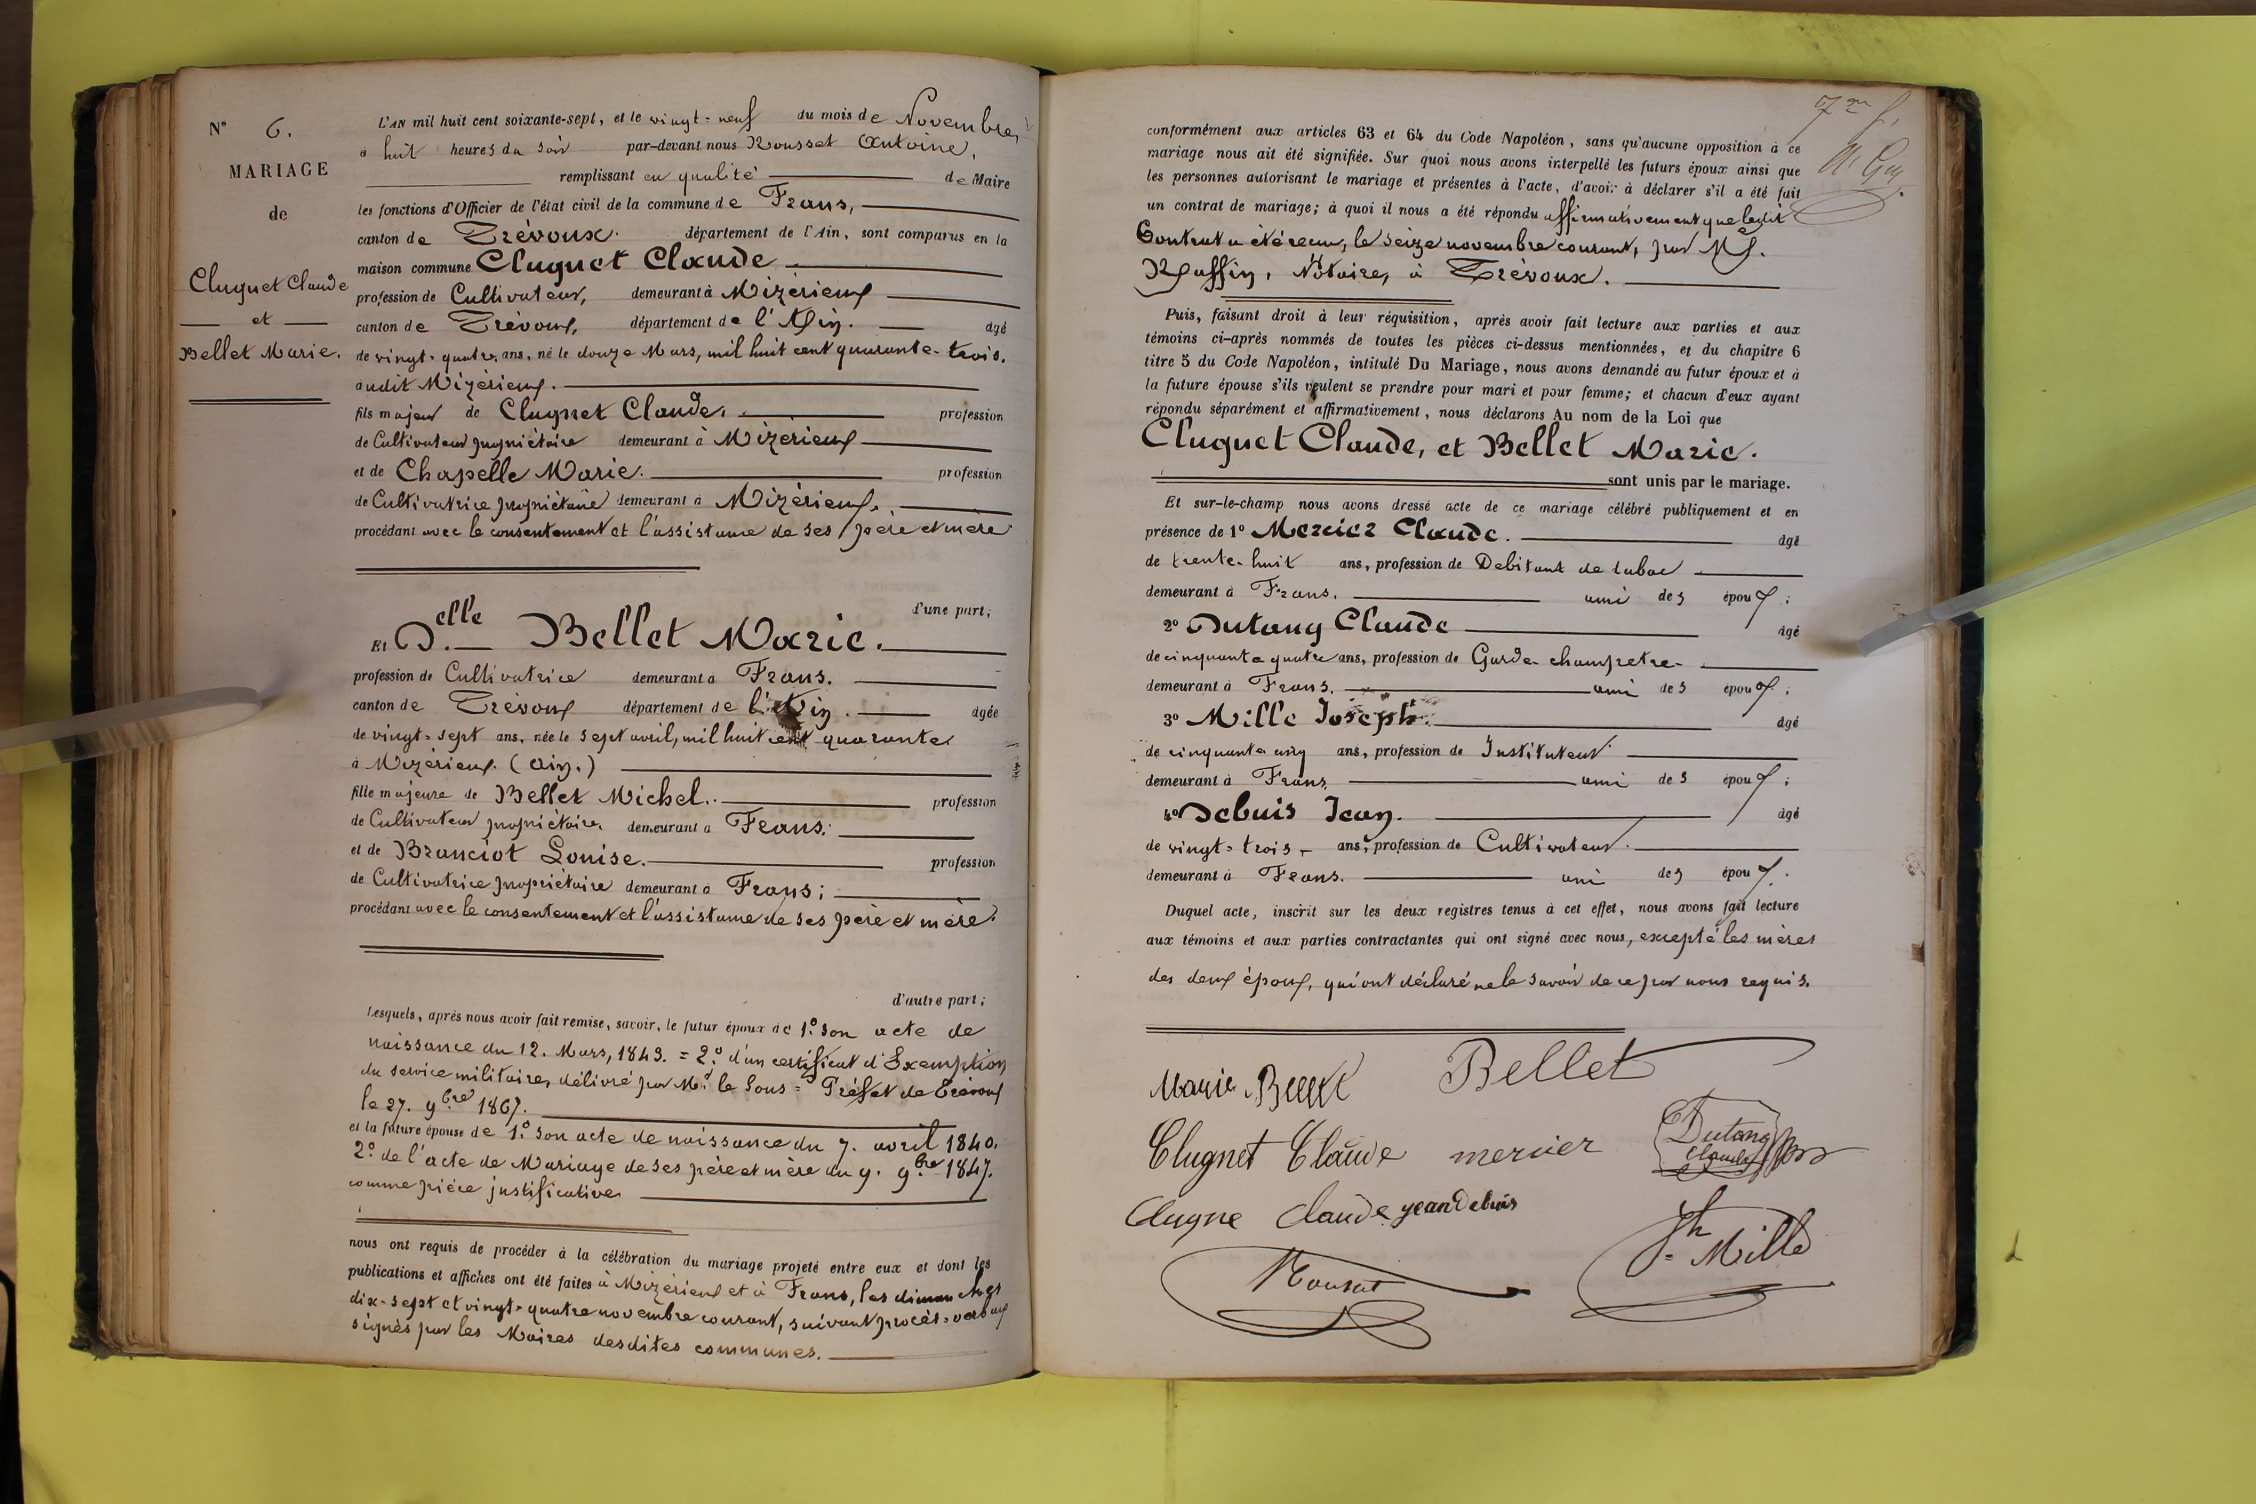 N° 6.
MARIAGE
de
Clugnet Claude
et
Bellet Marie.
L'AN mil huit cent soixante-sept, et le vingt-neuf du mois de Novembre,
à huit heures du soir par-devant nous Rousset Antoine,
remplissant en qualité de Maire
les fonctions d'Officier de l'état civil de la commune de Frans,
canton de Trévoux. département de l'Ain, sont comparus en la
maison commune Clugnet Claude
profession de Cultivateur, demeurant à Mizérieux
canton de Trévoux, département de l'Ain. âgé
de vingt-quatre ans, né le douze Mars, mil huit cent quarante-trois.
audit Mizérieux.
fils majeur de Clugnet Claude. profession
de Cultivateur propriétaire demeurant à Mizérieux
et de Chapelle Marie. profession
de Cultivatrice propriétaire demeurant à Mizérieux.
procédant avec le consentement et l'assistance de ses père et mère
d'une part;
Et D.elle Bellet Marie.
profession de Cultivatrice demeurant à Frans.
canton de Trévoux département de l'Ain. âgée
de vingt-sept ans, née le sept avril, mil huit cent quarante
à Mizérieux (Ain.)
fille majeure de Bellet Michel. profession
de Cultivateur propriétaire, demeurant à Frans.
et de Branciot Louise. profession
de Cultivatrice propriétaire demeurant à Frans;
procédant avec le consentement et l'assistance de ses père et mère
d'autre part;
Lesquels, après nous avoir fait remise, savoir, le futur époux de 1.° son acte de
naissance du 12. Mars, 1843. = 2.° d'un certificat d'Exemption
du service militaire, délivré par Mr. le Sous-Préfet de Trévoux
le 27. 9bre 1867.
et la future épouse de 1.° son acte de naissance du 7. avril 1840.
2.° de l'acte de Mariage de ses père et mère du 9. 9bre 1847.
comme pièce justificative
nous ont requis de procéder à la célébration du mariage projeté entre eux et dont les
publications et affiches ont été faites à Mizérieux et à Frans, les dimanches
dix-sept et vingt-quatre novembre courant, suivant procès-verbaux
signés par les Maires desdites communes.
conformément aux articles 63 et 64 du Code Napoléon, sans qu'aucune opposition à ce
mariage nous ait été signifiée. Sur quoi nous avons interpellé les futurs époux ainsi que
les personnes autorisant le mariage et présentes à l'acte, d'avoir à déclarer s'il a été fait
un contrat de mariage; à quoi il nous a été répondu affirmativement que ledit
Contrat a été reçu, le seize novembre courant, par Me.
Raffin, Notaire, à Trévoux.
Puis, faisant droit à leur réquisition, après avoir fait lecture aux parties et aux
témoins ci-après nommés de toutes les pièces ci-dessus mentionnées, et du chapitre 6
titre 5 du Code Napoléon, intitulé Du Mariage, nous avons demandé au futur époux et à
la future épouse s'ils veulent se prendre pour mari et pour femme; et chacun d'eux ayant
répondu séparément et affirmativement, nous déclarons Au nom de la Loi que
Clugnet Claude, et Bellet Marie.
sont unis par le mariage.
Et sur-le-champ nous avons dressé acte de ce mariage célébré publiquement et en
présence de 1° Mercier Claude. âgé
de trente-huit ans, profession de Debitant de tabac
demeurant à Frans. ami des époux;
2° Dutang Claude âgé
de cinquante quatre ans, profession de Garde-champetre
demeurant à Frans. ami des époux;
3° Mille Joseph. âgé
de cinquante cinq ans, profession de Instituteur
demeurant à Frans. ami des époux;
4° Debuis Jean. âgé
de vingt-trois ans, profession de Cultivateur.
demeurant à Frans. ami des époux.
Duquel acte, inscrit sur les deux registres tenus à cet effet, nous avons fait lecture
aux témoins et aux parties contractantes qui ont signé avec nous, excepté les mères
des deux époux, qui ont déclaré ne le savoir de ce par nous requis.
Marie Bellet Bellet
Clugnet Claude mercier Dutang Claude
Clugne Claude jean Debuis
Jh Mille
Rousset